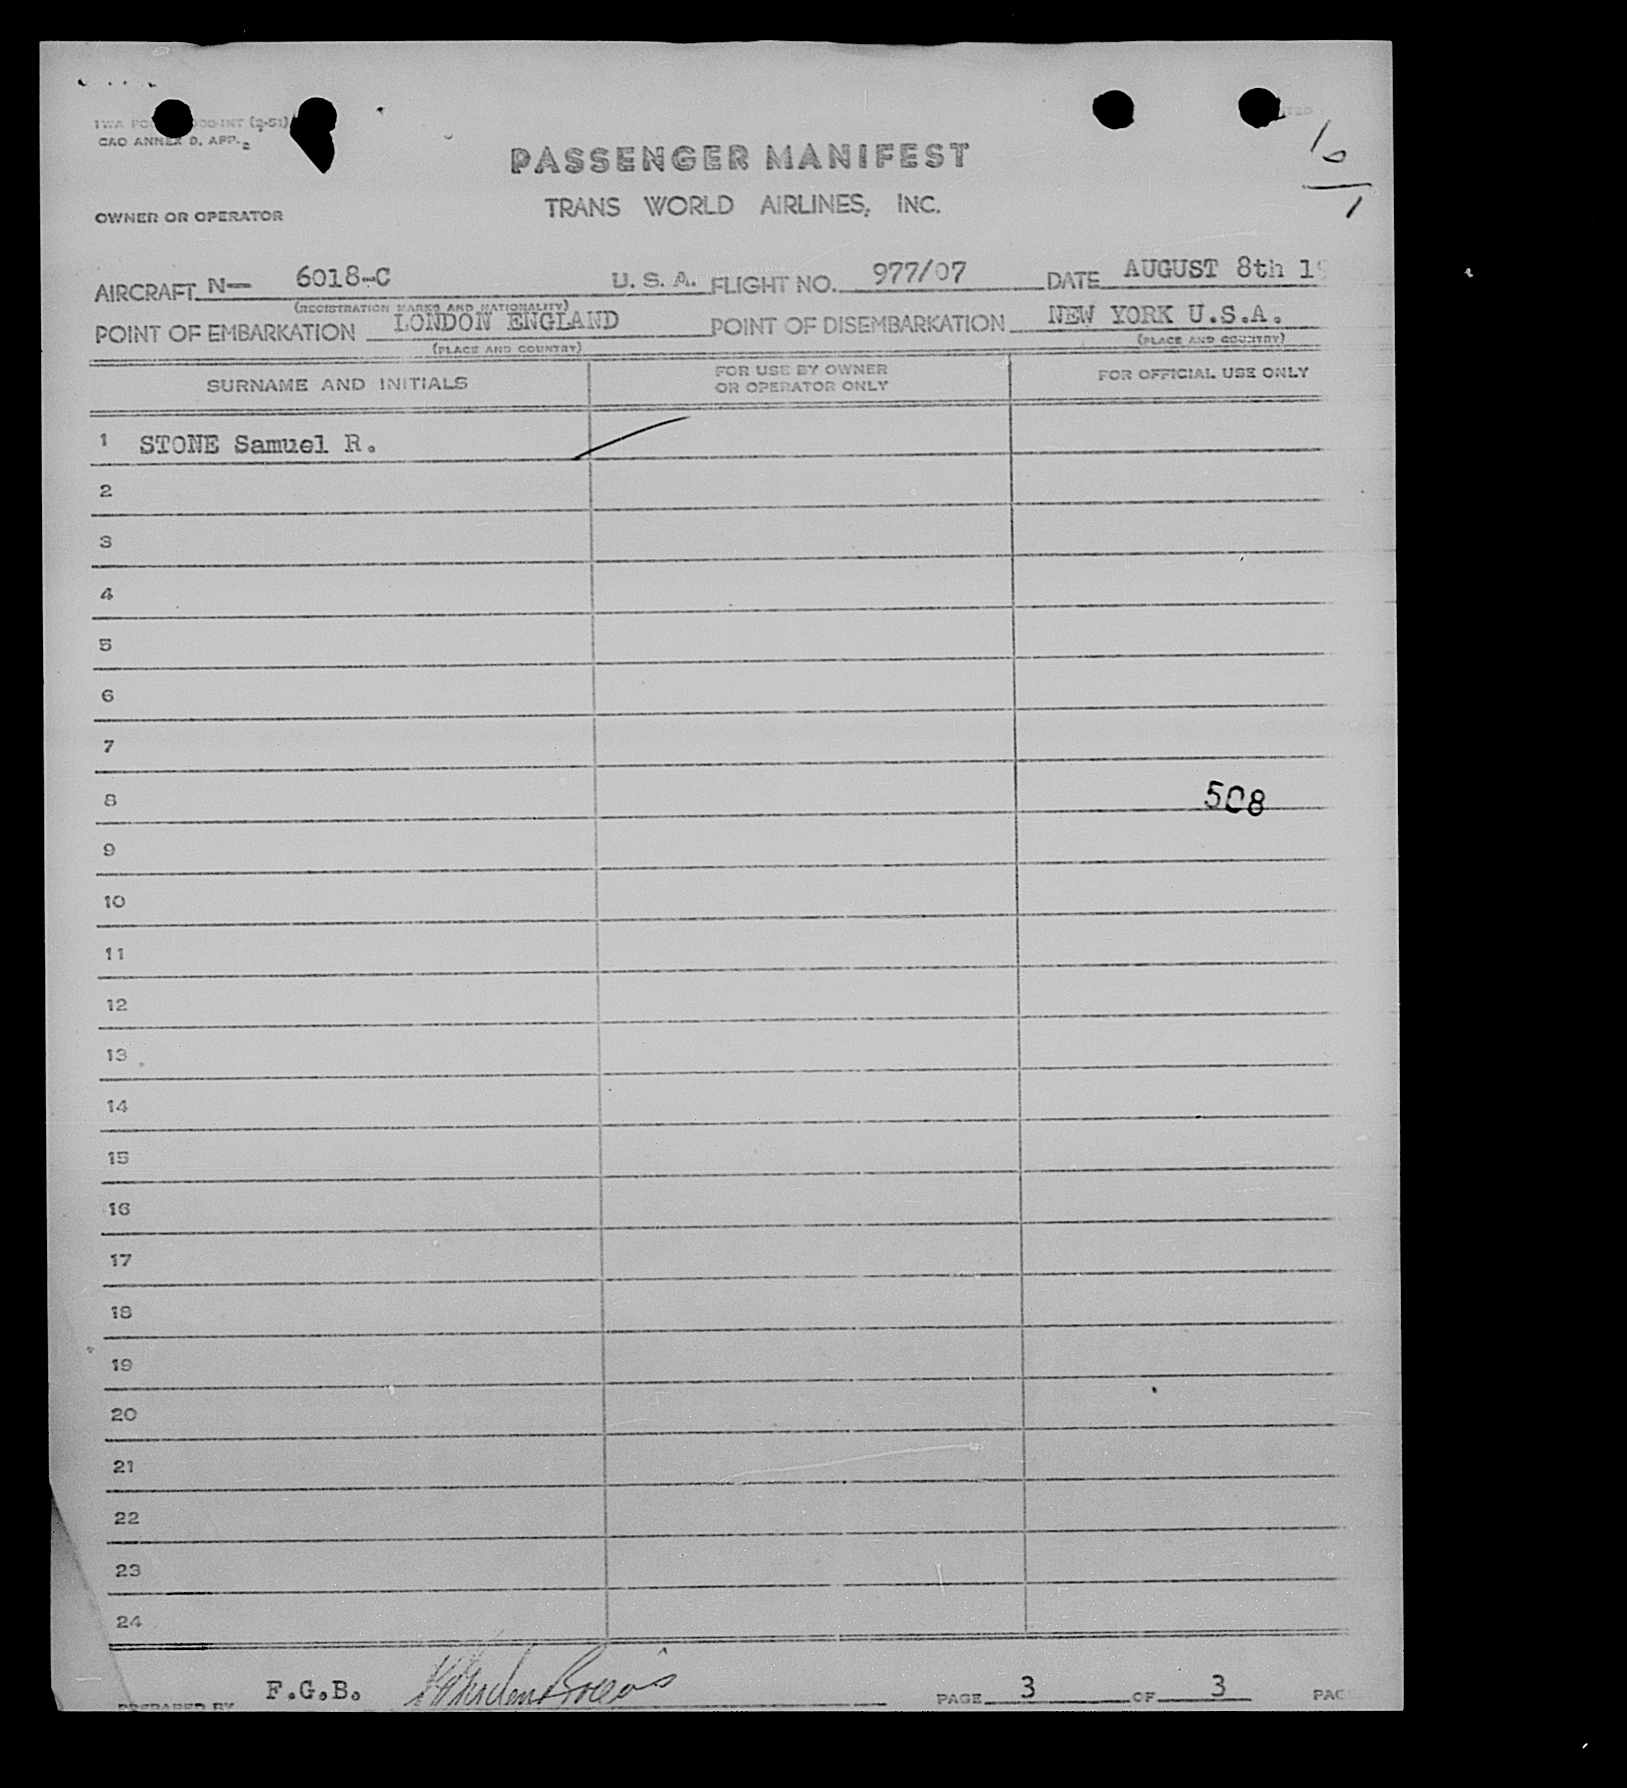 TWA FO
INT (2-51)
CAO ANNEX D. APP. 2
PASSENGER MANIFEST
TRANS WORLD AIRLINES, INC.
OWNER OR OPERATOR
AIRCRAFT N— 6018-C U. S. A. FLIGHT NO. 977/07 DATE AUGUST 8th 19
(REGISTRATION MARKS AND NATIONALITY)
POINT OF EMBARKATION LONDON ENGLAND POINT OF DISEMBARKATION NEW YORK U.S.A.
(PLACE AND COUNTRY) (PLACE AND COUNTRY)
SURNAME AND INITIALS
FOR USE BY OWNER
OR OPERATOR ONLY
FOR OFFICIAL USE ONLY
1 STONE Samuel R.
2
3
4
5
6
7
8 508
9
10
11
12
13
14
15
16
17
18
19
20
21
22
23
24
PREPARED BY F.G.B. PAGE 3 OF 3 PAG